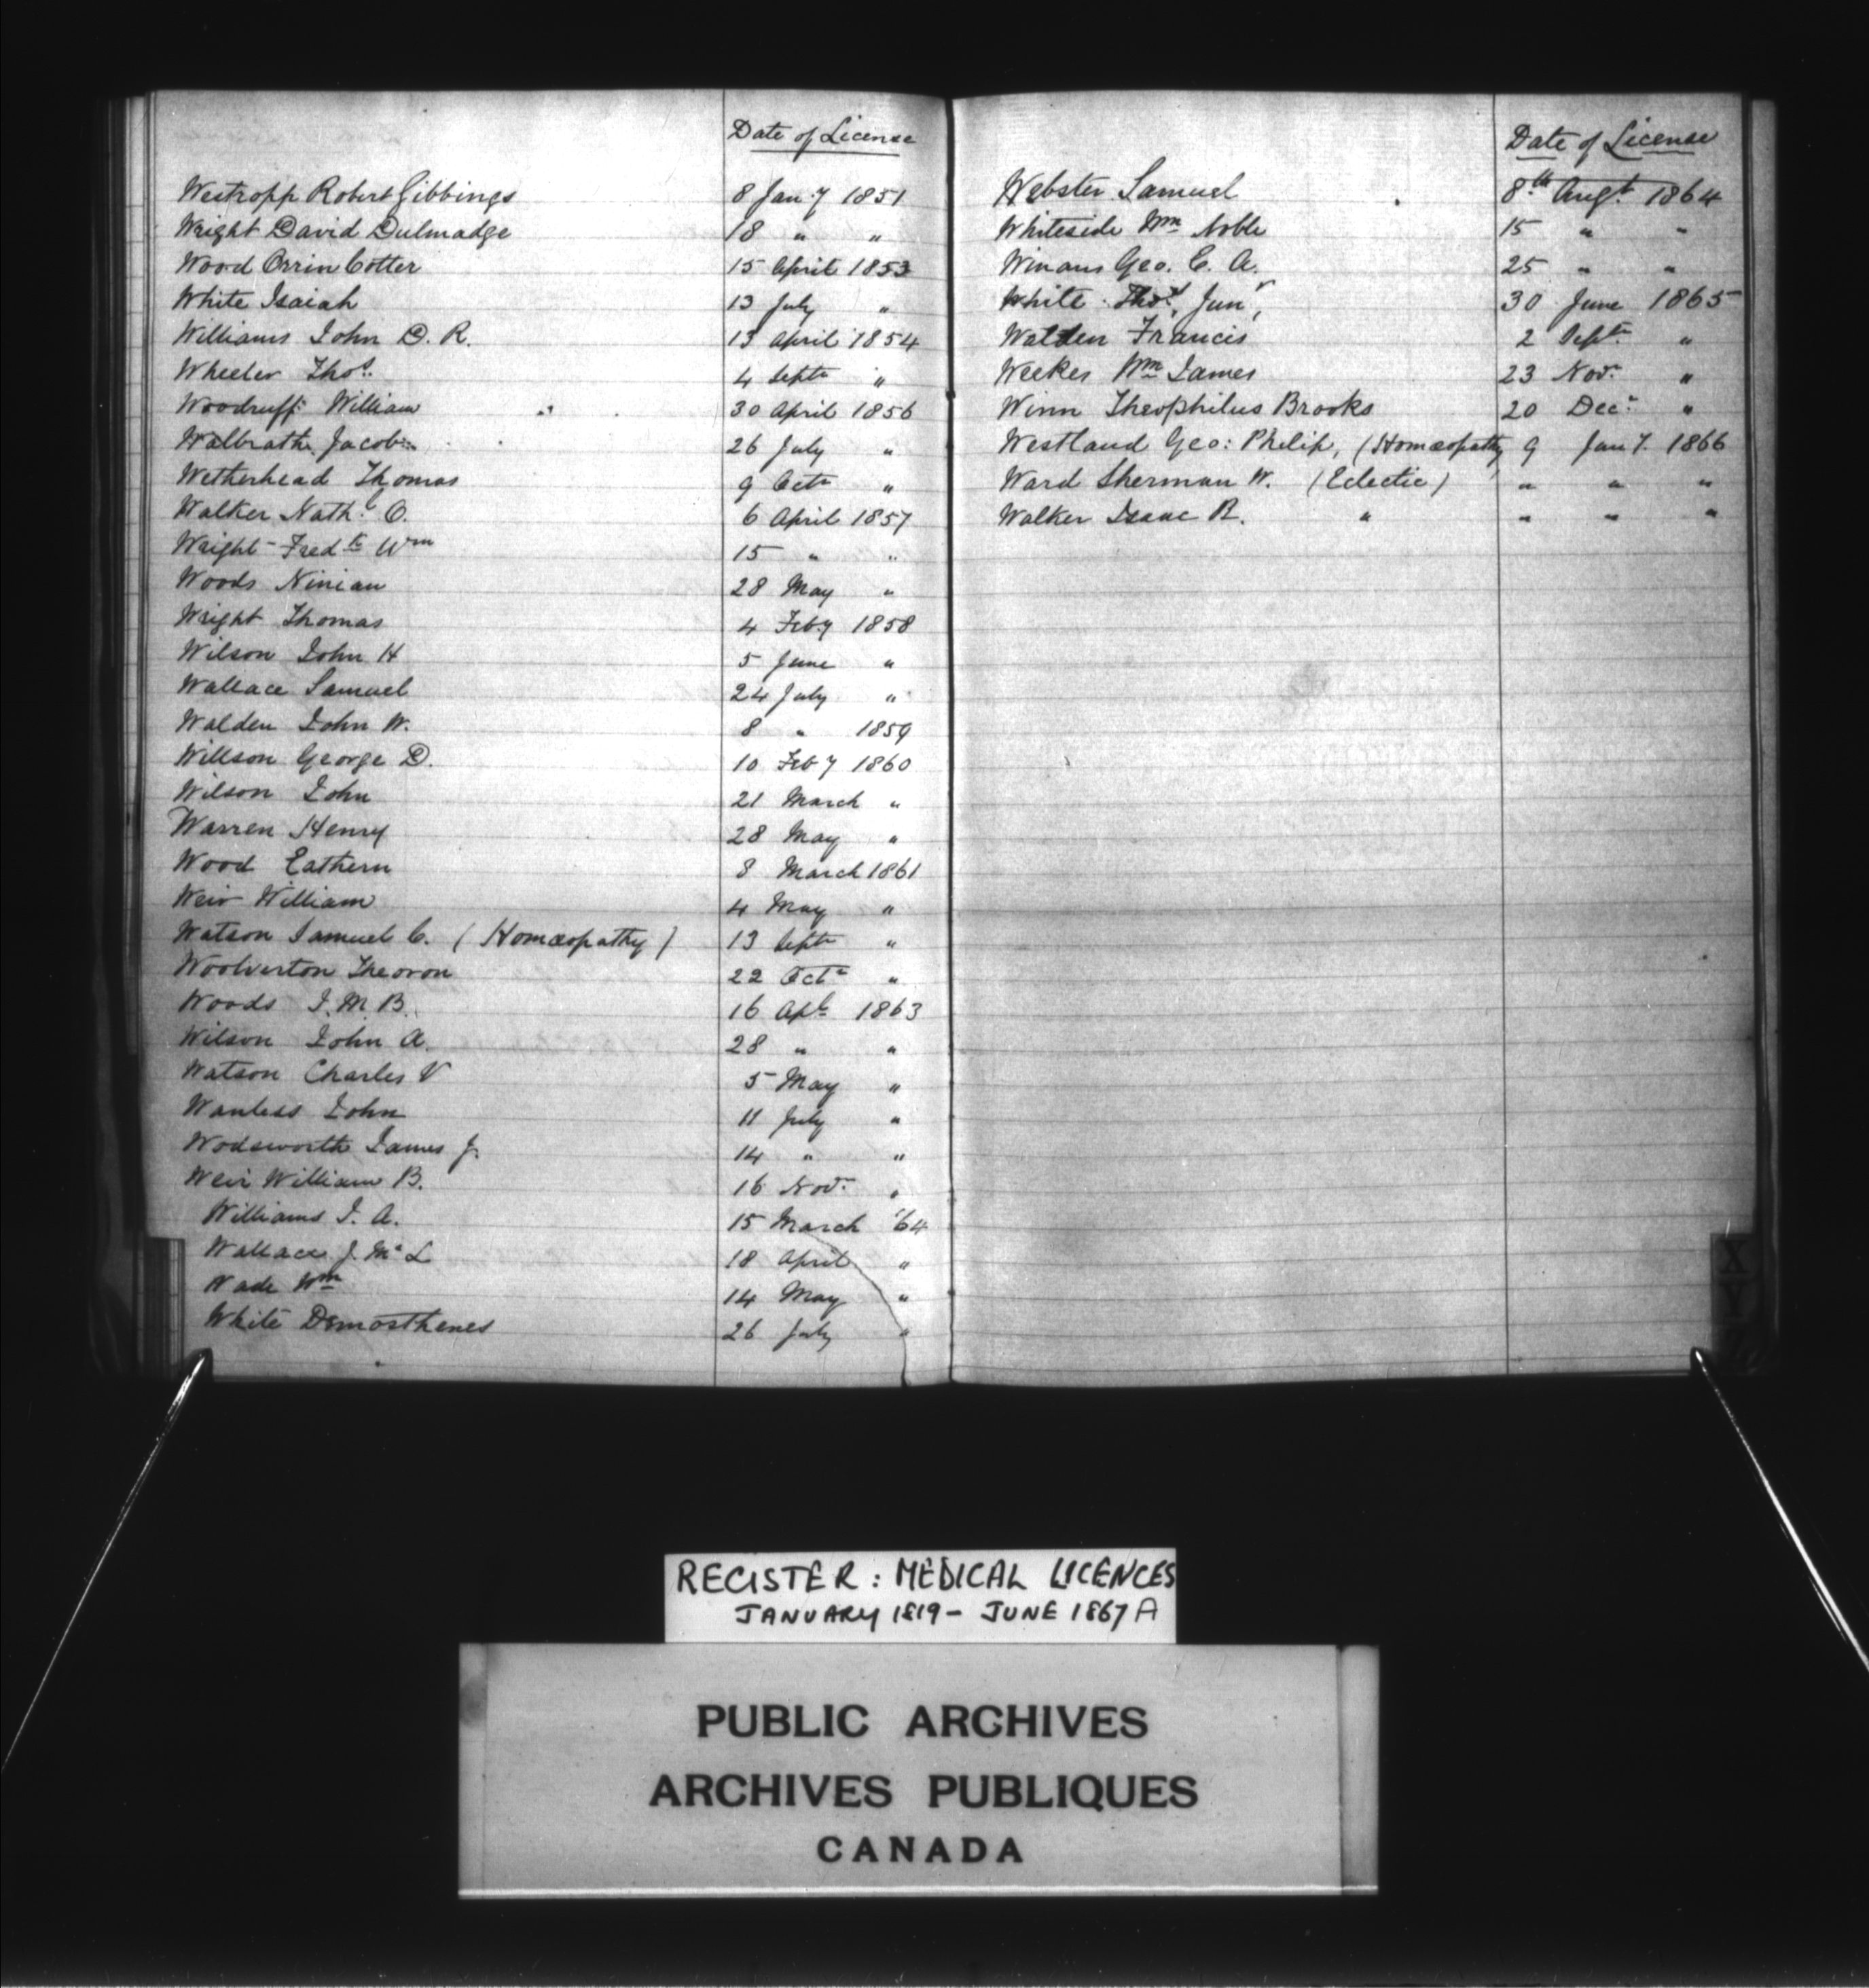 Date of License
Westropp Robert Gibbings 8 Jany 1851
Wright David Dulmadge 18 " "
Wood Orrin Cotter 15 April 1853
White Isaiah 13 July "
Williams John D. R. 13 April 1854
Wheeler Thos. 4 Septr "
Woodruff William 30 April 1856
Walbrath Jacob 26 July "
Wetherhead Thomas 9 Octr "
Walker Nathl. O. 6 April 1857
Wright Fredk Wm 15 " "
Woods Ninian 28 May "
Wright Thomas 4 Feby 1858
Wilson John H 5 June "
Wallace Samuel 24 July "
Walden John W. 8 " 1859
Willson George D. 10 Feby 1860
Wilson John 21 March "
Warren Henry 28 May "
Wood Eathern 8 March 1861
Weir William 4 May "
Watson Samuel C. (Homœopathy) 13 Septr "
Woolverton Theoron 22 Octr "
Woods J. M. B. 16 Apl 1863
Wilson John A. 28 " "
Watson Charles V 5 May "
Wanless John 11 July "
Wodsworth James J. 14 " "
Weir William B. 16 Nov. "
Williams J. A. 15 March '64
Wallace J. Mc L 18 April "
Wade Wm 14 May "
White Demosthenes 26 July "
Date of License
Webster Samuel 8th Augt. 1864
Whiteside Wm Noble 15 " "
Winans Geo. C. A. 25 " "
White Thos., Junr, 30 June 1865
Walden Francis 2 Septr "
Weekes Wm James 23 Nov. "
Winn Theophilus Brooks 20 Dec. "
Westland Geo: Philip, (Homœopathy 9 Jany. 1866
Ward Sherman W. (Eclectic) " " "
Walker Isaac R. " " " "
X
Y
Z
REGISTER: MEDICAL LICENCES
JANUARY 1819 - JUNE 1867 A
PUBLIC ARCHIVES
ARCHIVES PUBLIQUES
CANADA